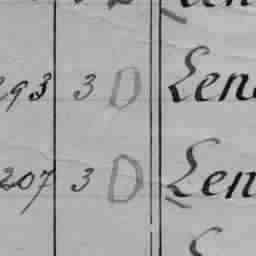 293 3 D Len
207 3 D Len